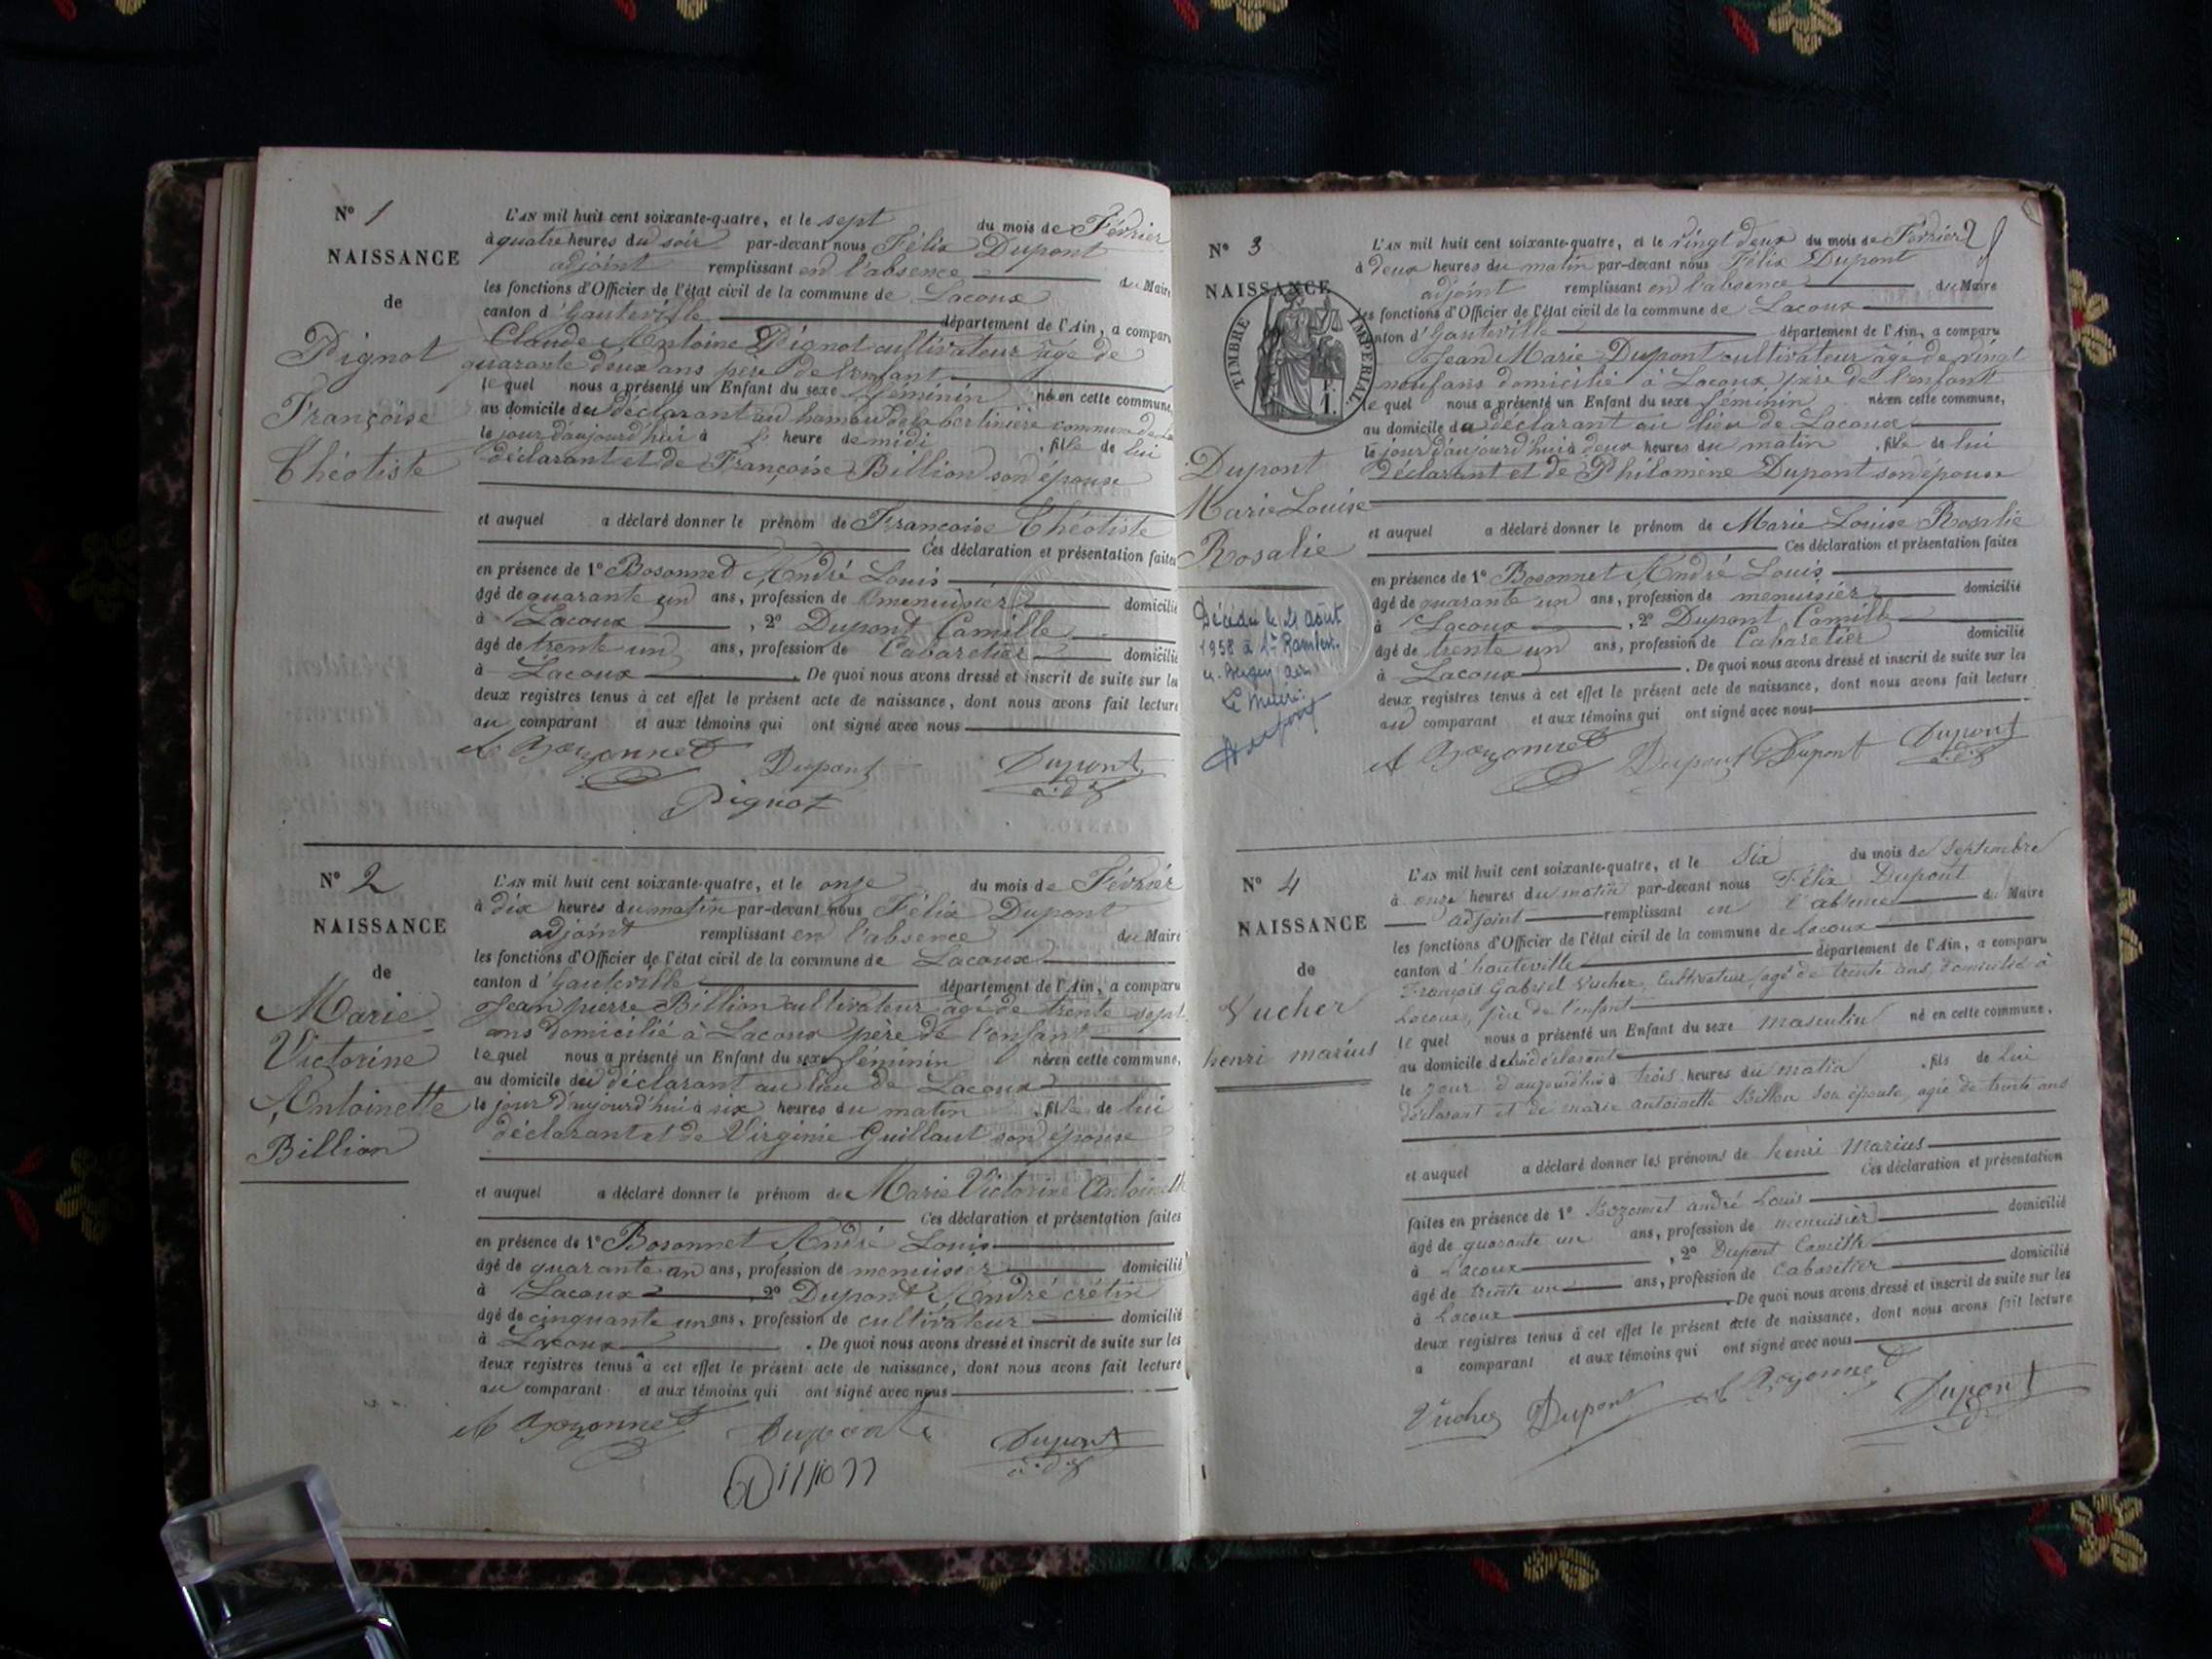 N° 1
NAISSANCE
de
Pignot
Françoise
Théotiste
L'AN mil huit cent soixante-quatre, et le sept du mois de Février
à quatre heures du soir par-devant nous Félix Dupont
adjoint remplissant en l'absence du Maire
les fonctions d'Officier de l'état civil de la commune de Lacoux
canton d'Hauteville département de l'Ain, a comparu
Claude Antoine Pignot cultivateur âgé de
quarante deux ans père de l'enfant
lequel nous a présenté un Enfant du sexe féminin née en cette commune,
au domicile du déclarant au hameau de la bertinière commune de
le jour d'aujourd'hui à heure de midi , fille de lui
déclarant et de Françoise Billion son épouse
et auquel a déclaré donner le prénom de Françoise Théotiste
Ces déclaration et présentation faites
en présence de 1° Bosonnet André Louis
âgé de quarante un ans, profession de menuisier domicilié
à Lacoux , 2° Dupont Camille
âgé de trente un ans, profession de Cabaretier domicilié
à Lacoux . De quoi nous avons dressé et inscrit de suite sur les
deux registres tenus à cet effet le présent acte de naissance, dont nous avons fait lecture
au comparant et aux témoins qui ont signé avec nous
A Bozonnet Dupont Dupont
Pignot
N° 2
NAISSANCE
de
Marie
Victorine
Antoinette
Billion
L'AN mil huit cent soixante-quatre, et le onze du mois de Février
à dix heures du matin par-devant nous Félix Dupont
adjoint remplissant en l'absence du Maire
les fonctions d'Officier de l'état civil de la commune de Lacoux
canton d'Hauteville département de l'Ain, a comparu
Jean pierre Billion cultivateur âgé de trente sept
ans domicilié à Lacoux père de l'enfant
lequel nous a présenté un Enfant du sexe féminin née en cette commune,
au domicile du déclarant au lieu de Lacoux
le jour d'aujourd'hui à six heures du matin , fille de lui
déclarant et de Virginie Guillaut son épouse
et auquel a déclaré donner le prénom de Marie Victorine Antoinette
Ces déclaration et présentation faites
en présence de 1° Bosonnet André Louis
âgé de quarante un ans, profession de menuisier domicilié
à Lacoux , 2° Dupont André crétin
âgé de cinquante un ans, profession de cultivateur domicilié
à Lacoux . De quoi nous avons dressé et inscrit de suite sur les
deux registres tenus à cet effet le présent acte de naissance, dont nous avons fait lecture
au comparant et aux témoins qui ont signé avec nous
A Bozonnet Dupont Dupont
N° 3
NAISSANCE
TIMBRE IMPERIAL
Dupont
Marie Louise
Rosalie
Décédée le 21 Août
1958 à St Rambert
Le Maire:
L'AN mil huit cent soixante-quatre, et le vingt deux du mois de Février
à deux heures du matin par-devant nous Félix Dupont
adjoint remplissant en l'absence du Maire
les fonctions d'Officier de l'état civil de la commune de Lacoux
canton d'Hauteville département de l'Ain, a comparu
Jean Marie Dupont cultivateur âgé de vingt
neuf ans domicilié à Lacoux père de l'enfant
lequel nous a présenté un Enfant du sexe féminin née en cette commune,
au domicile du déclarant au lieu de Lacoux
le jour d'aujourd'hui à deux heures du matin , fille de lui
déclarant et de Philomène Dupont son épouse
et auquel a déclaré donner le prénom de Marie Louise Rosalie
Ces déclaration et présentation faites
en présence de 1° Bosonnet André Louis
âgé de quarante un ans, profession de menuisier domicilié
à Lacoux , 2° Dupont Camille
âgé de trente un ans, profession de Cabaretier domicilié
à Lacoux . De quoi nous avons dressé et inscrit de suite sur les
deux registres tenus à cet effet le présent acte de naissance, dont nous avons fait lecture
au comparant et aux témoins qui ont signé avec nous
A Bozonnet Dupont Dupont Dupont
N° 4
NAISSANCE
de
Vucher
henri marius
L'AN mil huit cent soixante-quatre, et le Six du mois de Septembre
à onze heures du matin par-devant nous Félix Dupont
adjoint remplissant en l'absence du Maire
les fonctions d'Officier de l'état civil de la commune de Lacoux
canton d'hauteville département de l'Ain, a comparu
François Gabriel Vucher, Cultivateur, agé de trente ans, domicilié à
Lacoux, père de l'enfant
lequel nous a présenté un Enfant du sexe masculin né en cette commune,
au domicile de lui déclarant
le jour d'aujourd'hui à trois heures du matin , fils de lui
déclarant et de marie antoinette Billion son épouse, agée de trente ans
et auquel a déclaré donner les prénoms de henri marius
Ces déclaration et présentation
faites en présence de 1° Bozonnet andré Louis domicilié
âgé de quarante un ans, profession de menuisier
à Lacoux , 2° Dupont Camille
âgé de trente un ans, profession de Cabaretier domicilié
à Lacoux . De quoi nous avons dressé et inscrit de suite sur les
deux registres tenus à cet effet le présent acte de naissance, dont nous avons fait lecture
a comparant et aux témoins qui ont signé avec nous
Vucher Dupont A Bozonnet Dupont